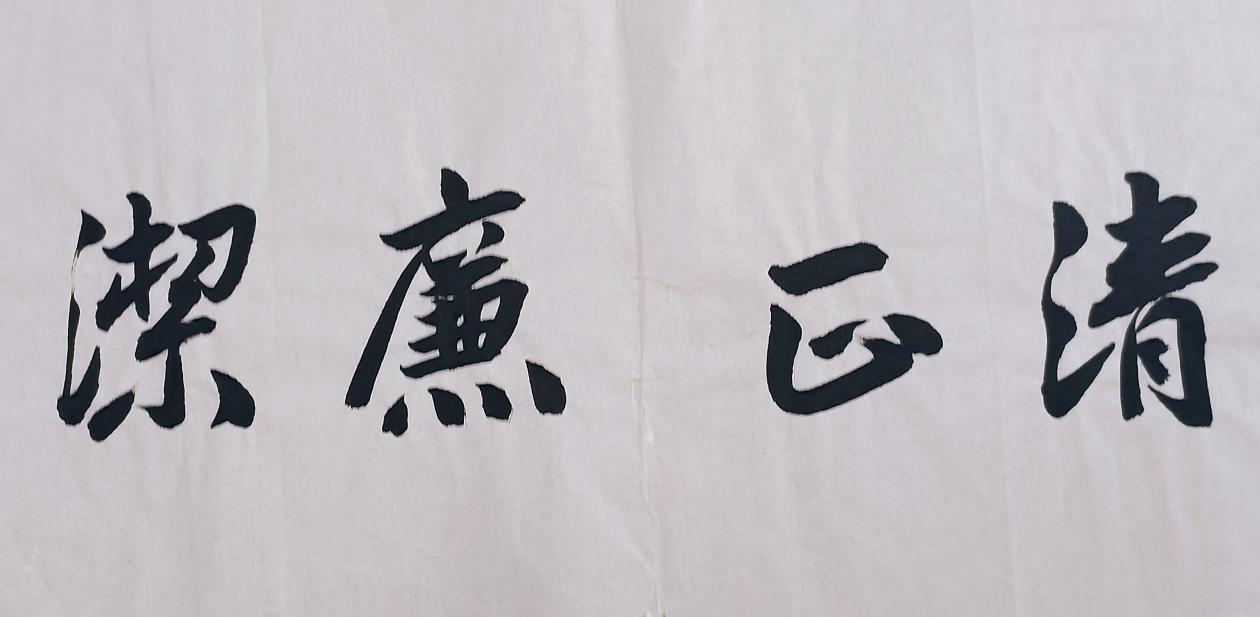 清正廉潔